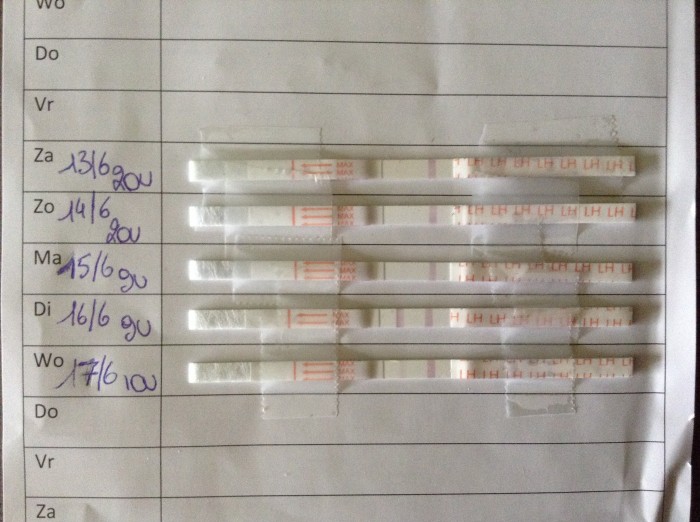 Wo
Do
Vr
Za 13/6 20u
MAX
MAX
MAX
LH LH LH LH LH LH LH
Zo 14/6 20u
MAX
MAX
MAX
LH LH LH LH LH LH LH
Ma 15/6 9u
MAX
MAX
MAX
LH LH LH LH LH LH LH
Di 16/6 9u
MAX
MAX
H LH LH LH LH LH LH LH
Wo 17/6 10u
MAX
MAX
MAX
H LH LH LH LH LH LH
Do
Vr
Za